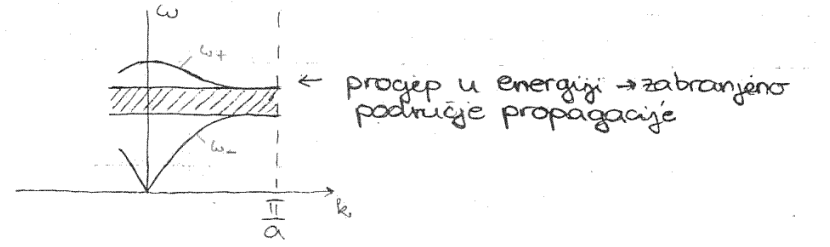 ω
ω+
← procjep u energiji → zabranjeno
područje propagacije
ω-
π/a
k